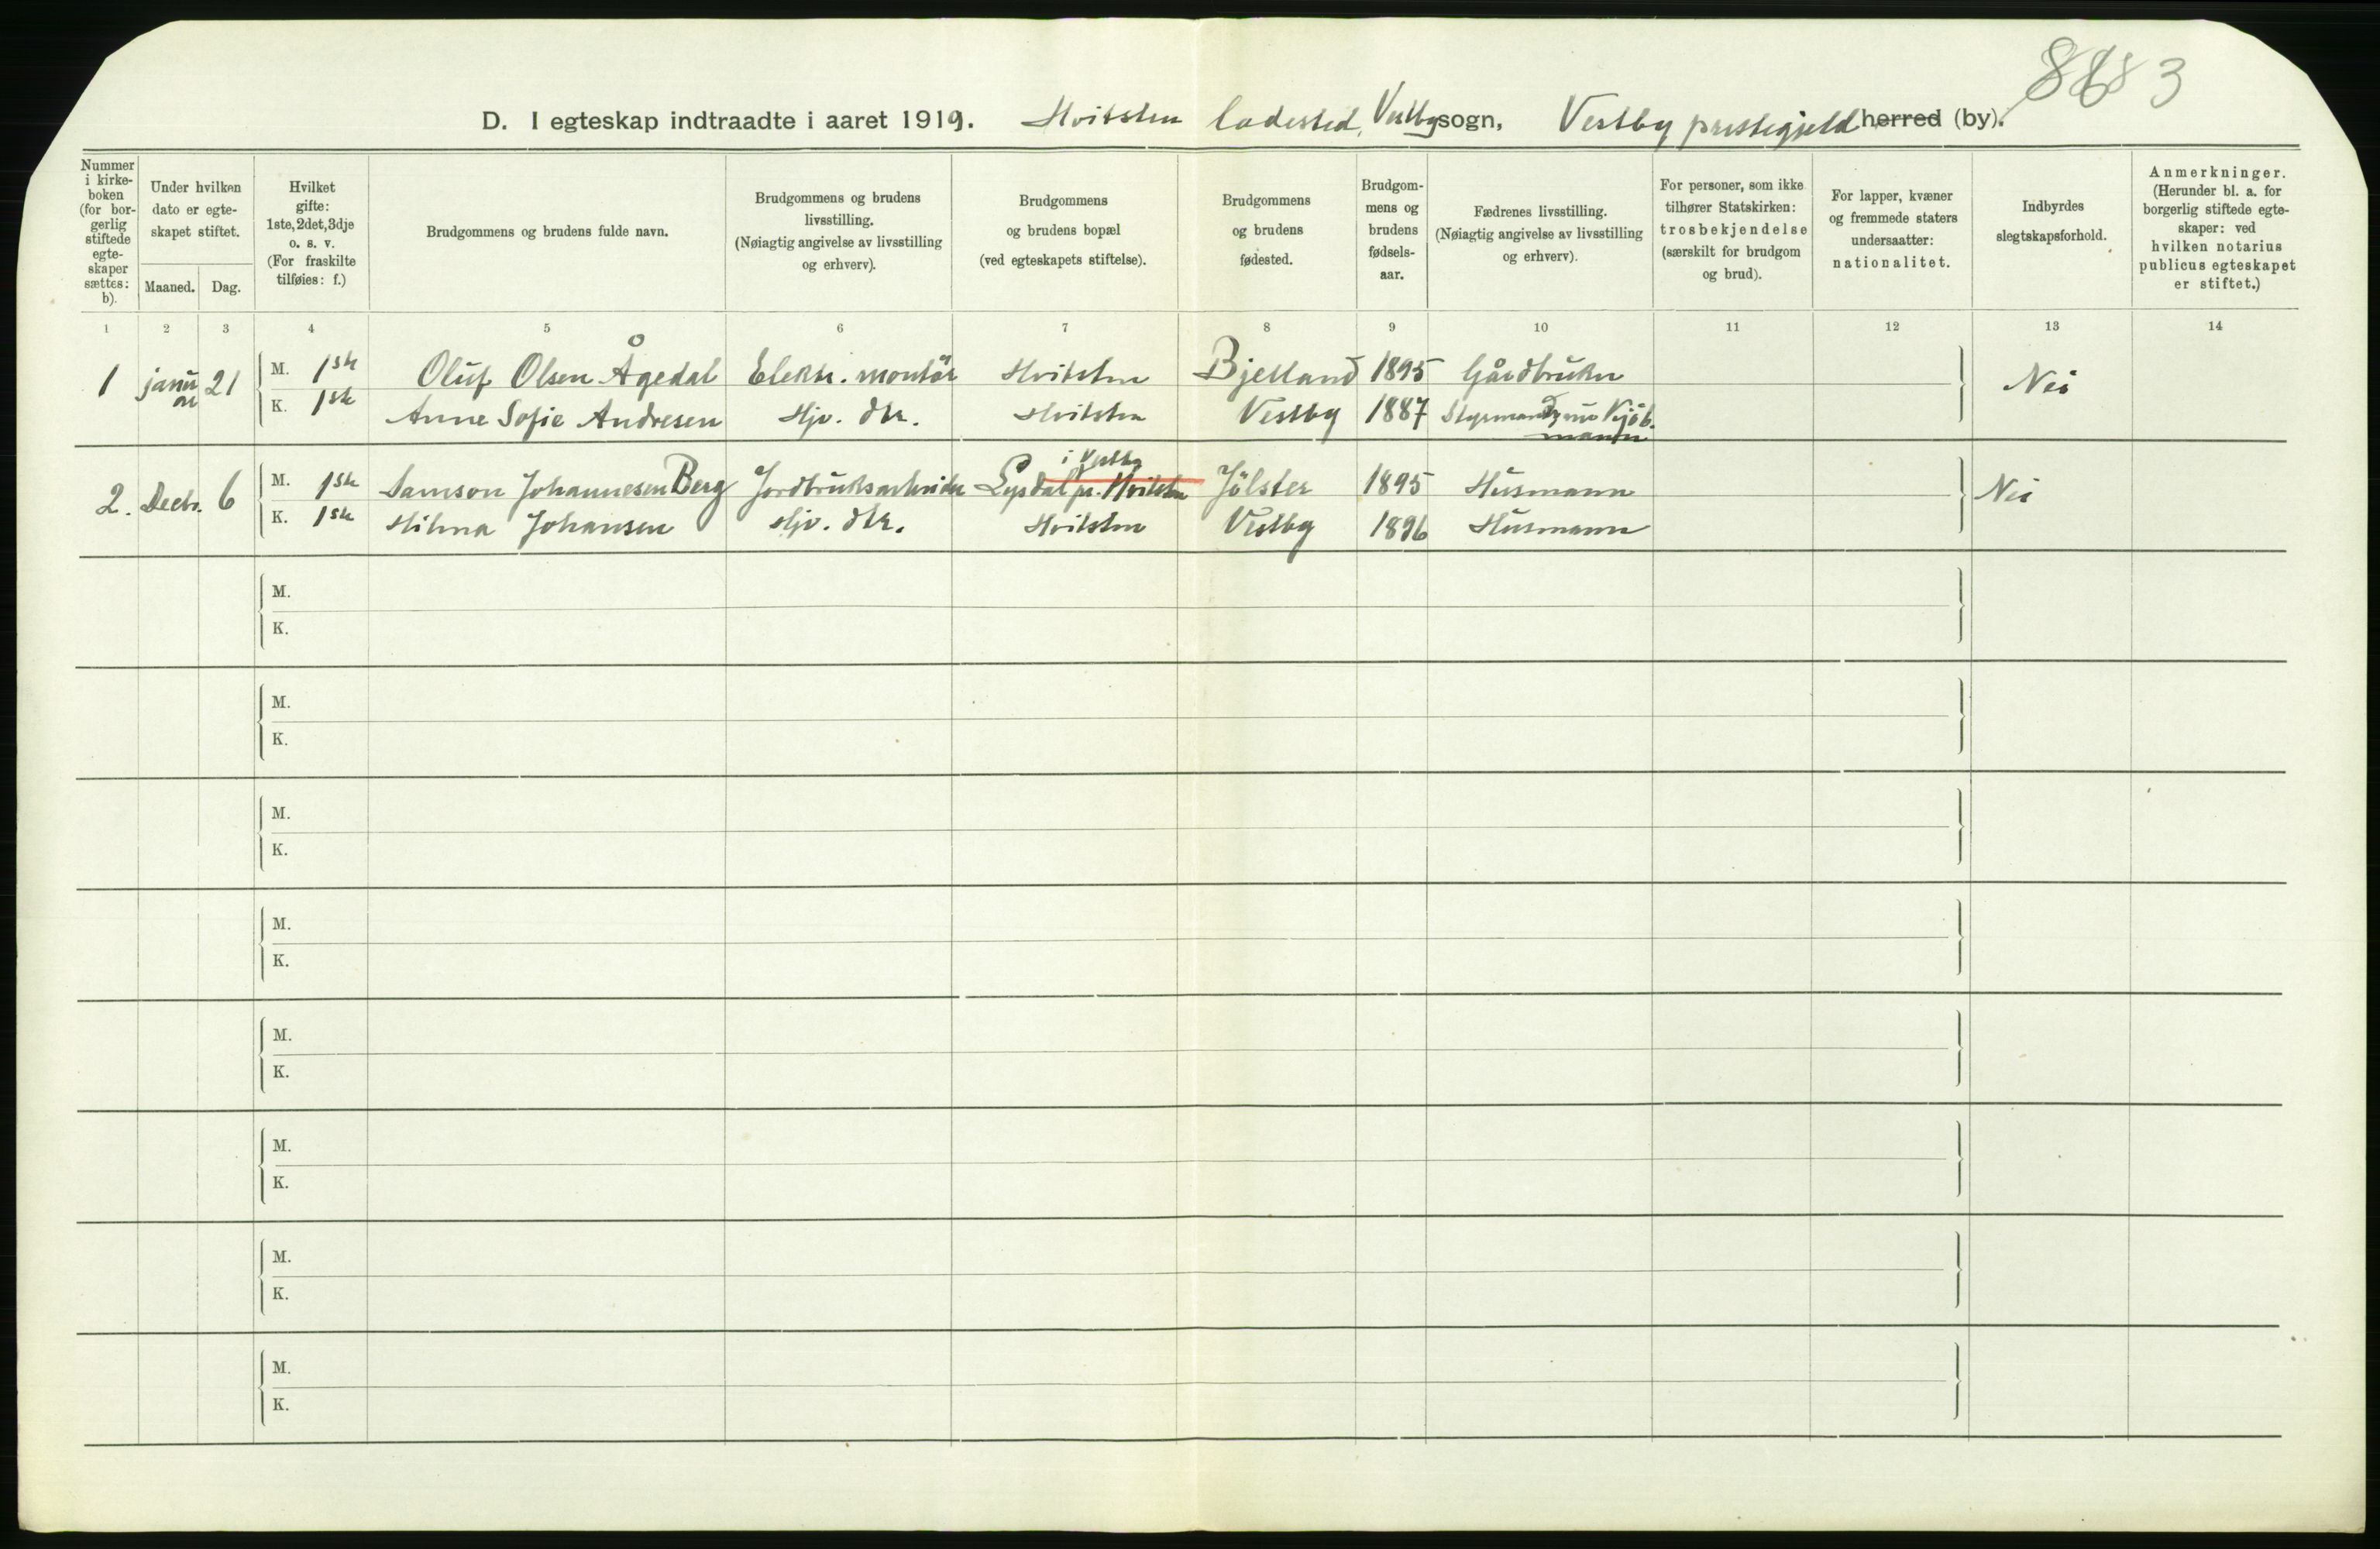 8883
D. I egteskap indtraadte i aaret 1919. Hvitsten ladested, Vestby sogn, Vestby prestegjeld herred (by).
Nummer i kirkeboken (for borgerlig stiftede egteskaper sættes: b).
Under hvilken dato er egteskapet stiftet.
Maaned. Dag.
Hvilket gifte: 1ste, 2det, 3dje o. s. v. (For fraskilte tilføies: f.)
Brudgommens og brudens fulde navn.
Brudgommens og brudens livsstilling. (Nøiagtig angivelse av livsstilling og erhverv).
Brudgommens og brudens bopæl (ved egteskapets stiftelse).
Brudgommens og brudens fødested.
Brudgommens og brudens fødselsaar.
Fædrenes livsstilling. (Nøiagtig angivelse av livsstilling og erhverv).
For personer, som ikke tilhører Statskirken: trosbekjendelse (særskilt for brudgom og brud).
For lapper, kvæner og fremmede staters undersaatter: nationalitet.
Indbyrdes slegtskapsforhold.
Anmerkninger. (Herunder bl. a. for borgerlig stiftede egteskaper: ved hvilken notarius publicus egteskapet er stiftet.)
1 2 3 4 5 6 7 8 9 10 11 12 13 14
1 januar 21 M. 1ste Oluf Olsen Ågedal Elektr. montör Hvitsten Bjelland 1895 Gårdbruker Nei
K. 1ste Anne Sofie Andresen Hjv. dtr. Hvitsten Vestby 1887 Styrmand
2. Decbr. 6 M. 1ste Samson Johannesen Berg Jordbruksarbeider Lysdal pr. Hvitsten i Vestby Jölster 1895 Husmann Nei
K. 1ste Hilma Johansen Hjv. dtr. Hvitsten Vestby 1896 Husmann
M.
K.
M.
K.
M.
K.
M.
K.
M.
K.
M.
K.
M.
K.
M.
K.